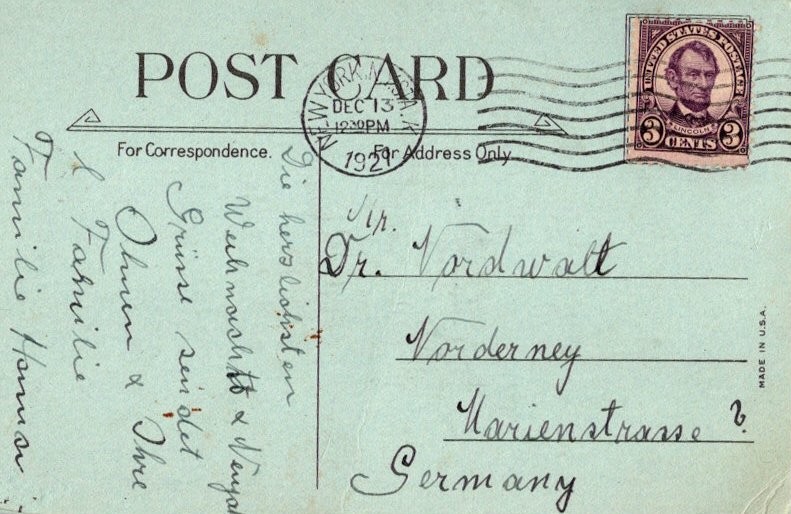 POST CARD
NEW YORK, N.Y. STA. K
DEC 13
12 30 PM
1921
UNITED STATES POSTAGE
LINCOLN
3 CENTS 3
For Correspondence.
For Address Only
Die herzlichsten
Weihnachts & Neujah
Grüsse sendet
Ihnen & Ihre
Familie
Familie
Mr.
Dr. Nordwalt
Norderney
Marienstrasse ?
Germany
MADE IN U.S.A.